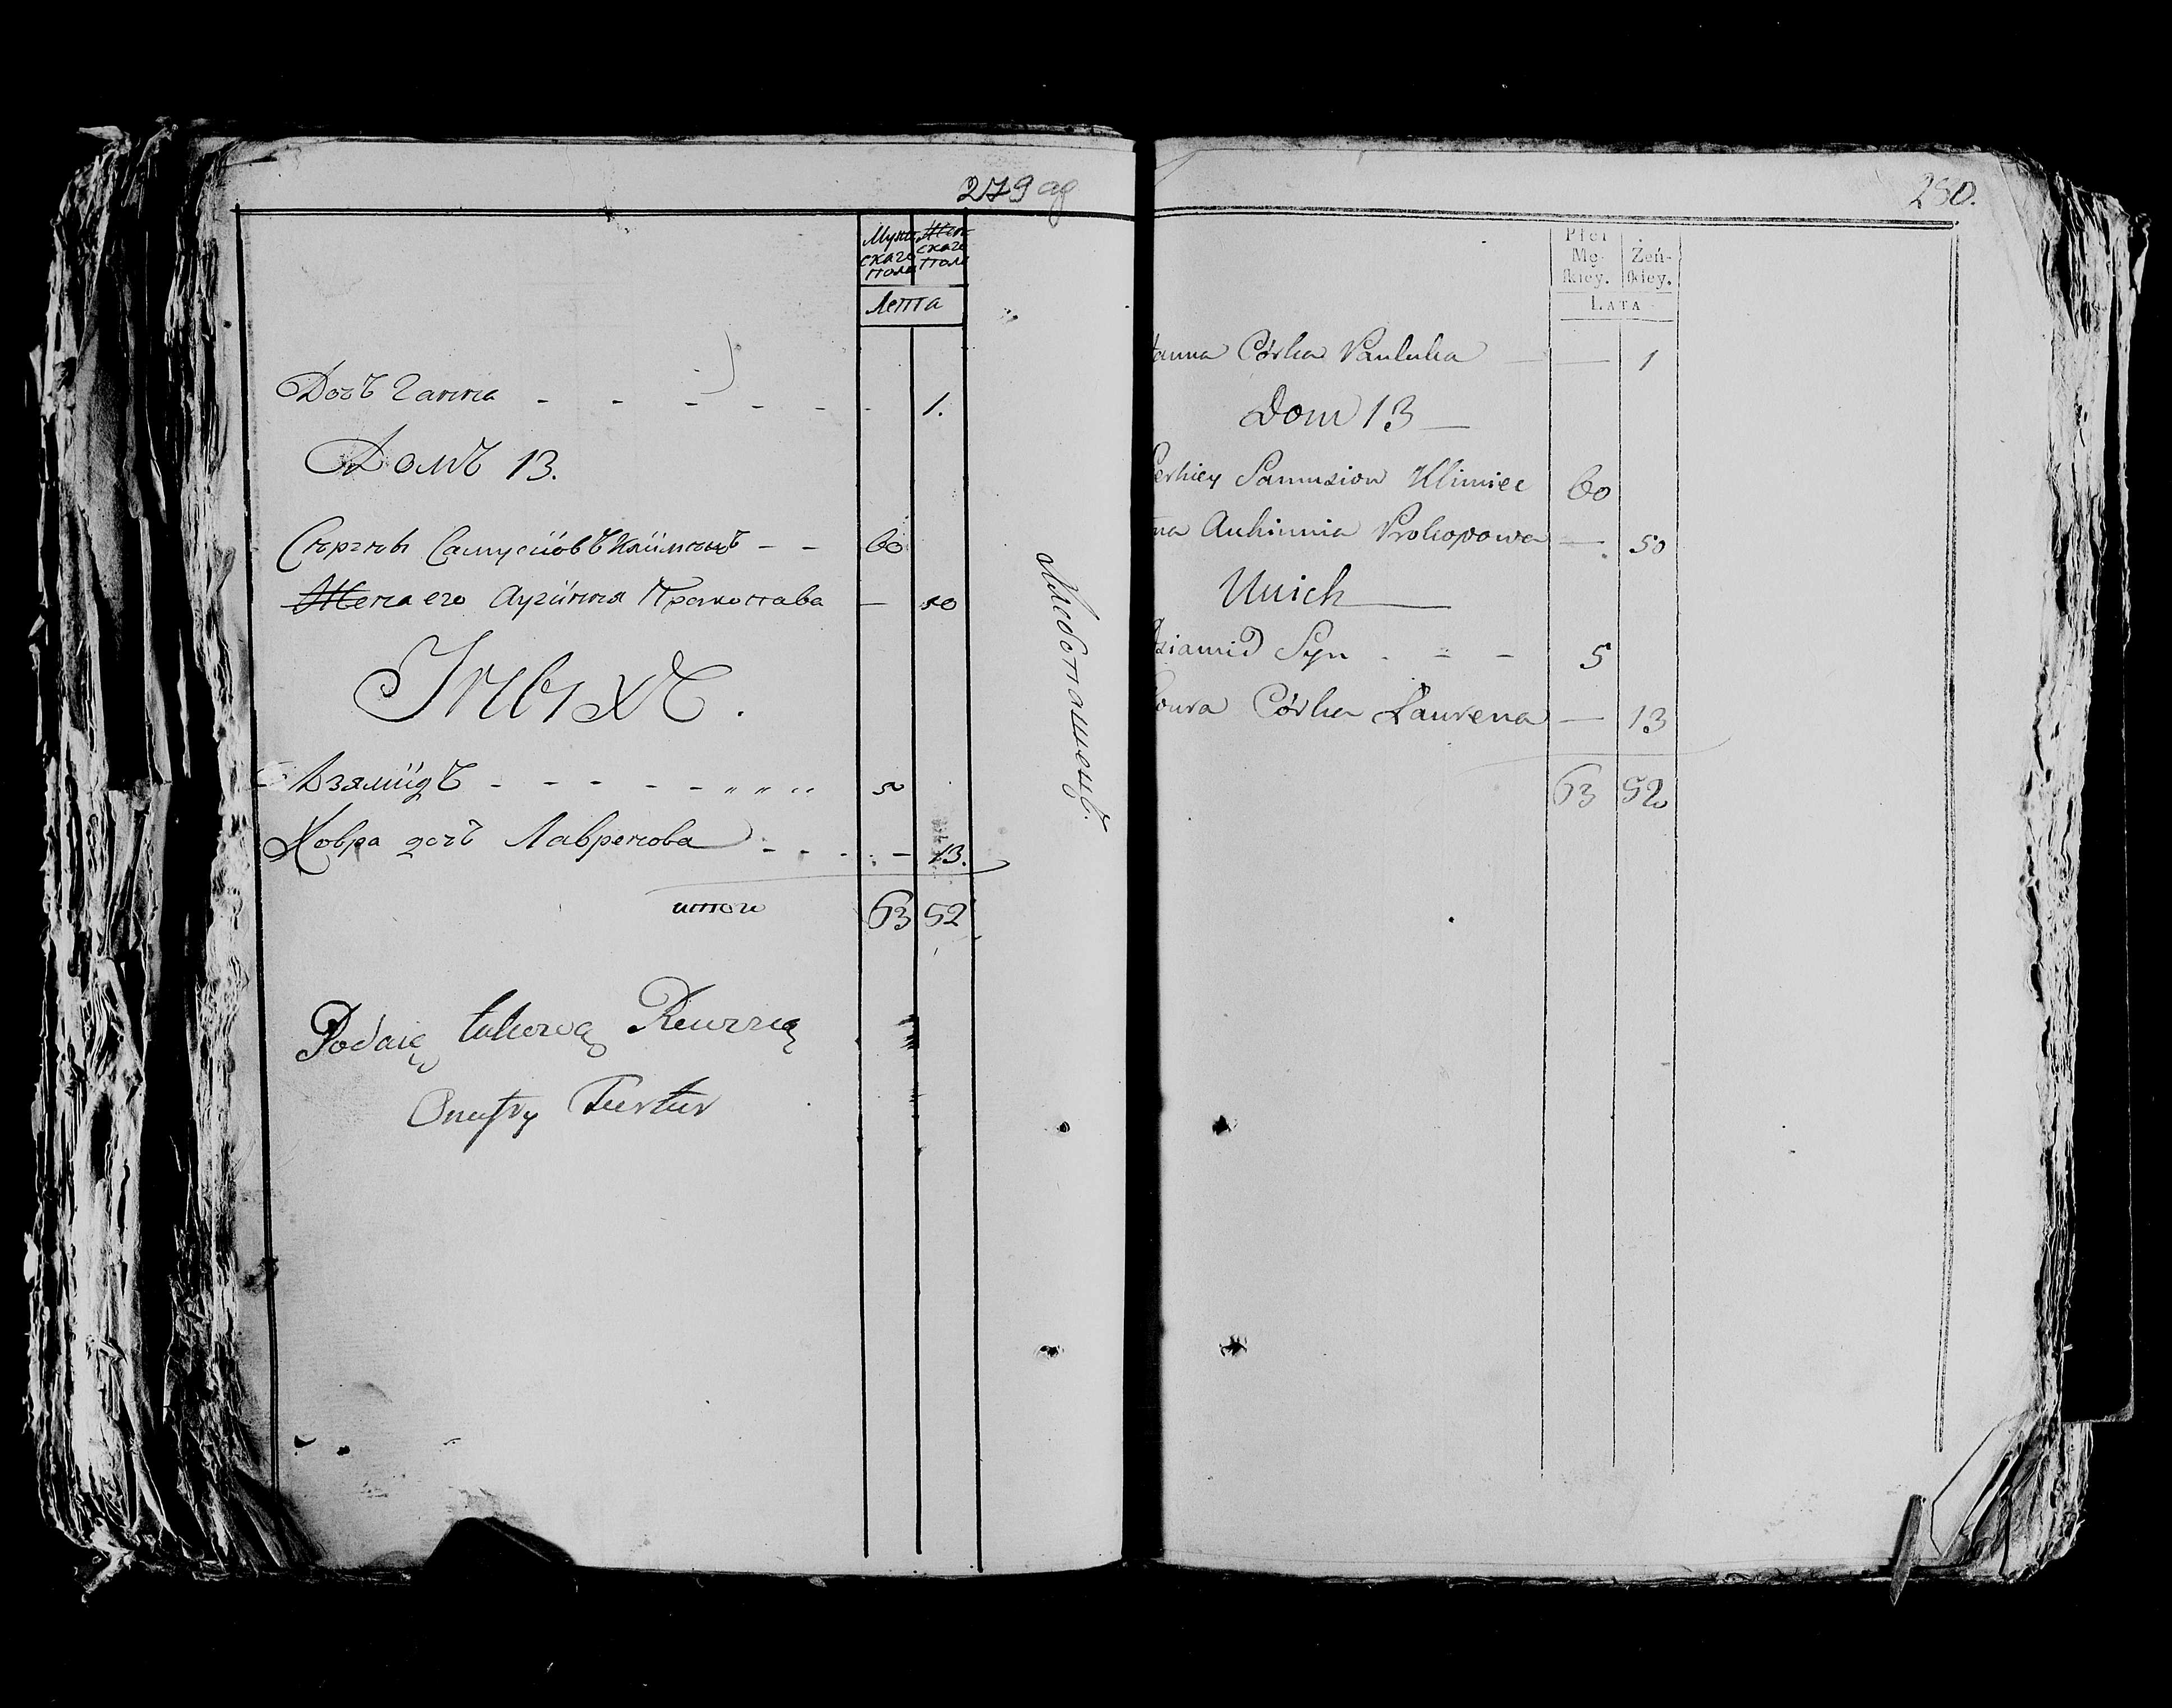 279 об
Мужескаго пола
Женскаго пола
Лета
Дочъ Ганна - - - - - - 1.
Домъ 13.
Сергей Самусiовъ Климецъ - - 60
Жена его Аугiння Пракопава — 50
Ихъ
Дзямiдъ - - - - - 5
Ховра дочъ Лавренова - - - - 13.
итого 63 52
Podaię takową Rewizią
Onufry Turtur
280.
Płci
Mę- skiey.
Żeń- skiey.
LATA
anna Córka Pauluka — — 1
Dom 13 —
erhiey Samusiow Klimiec 60
na Auhinnia Prokopowa — 50
Unich
ziamid Syn - - - 5
oura Córka Laurena — 13
63 52